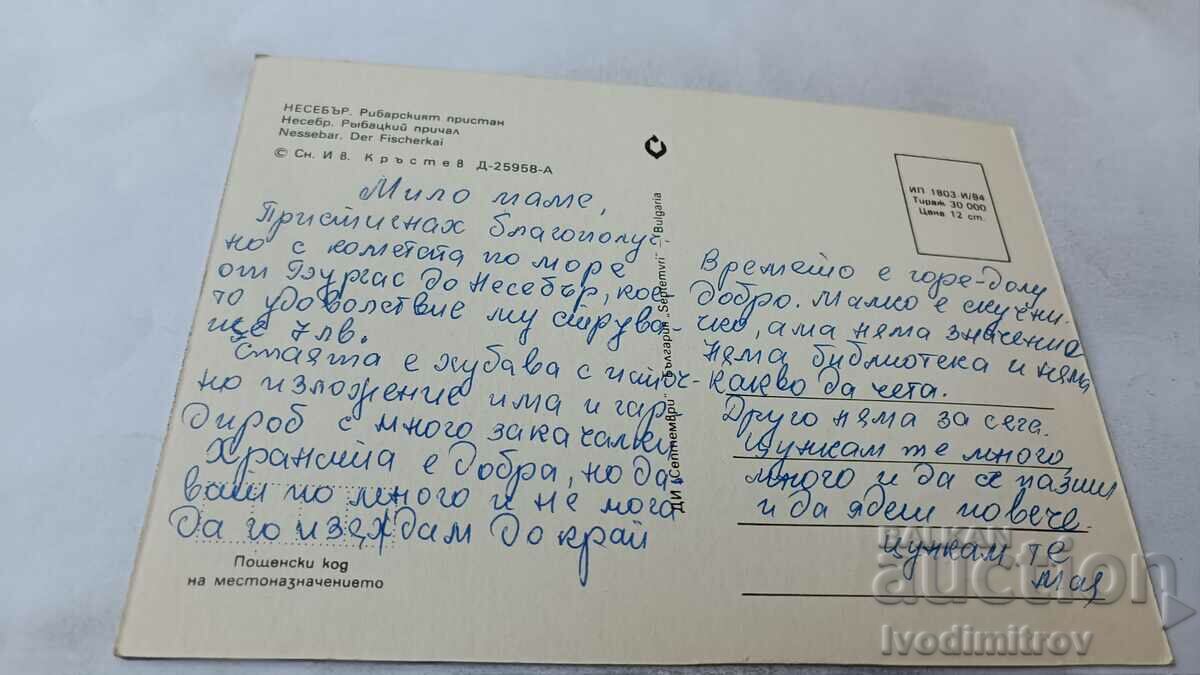 НЕСЕБЪР. Рибарският пристан
Несебр. Рыбацкий причал
Nessebar. Der Fischerkai
© Сн. Ив. Кръстев Д-25958-А
Мило маме,
Пристигнах благополуч-
но с комета по море
от Бургас до Несебър, кое-
то удоволствие му струва-
ше 7 лв.
Стаята е хубава с източ-
но изложение има и гар-
дироб с много закачалки
Храната е добра, но да-
ват по много и не мога
да го изеждам докрай
Пощенски код
на местоназначението
ДИ „Септември" България „Septemvri" – Bulgaria
ИП 1803 И/84
Тираж 30 000
Цена 12 ст.
Времето е горе-долу
добро. Малко е скучни-
чко, ама няма значение
няма библиотека и няма
какво да чета.
Друго няма за сега.
Цункам те много,
много и да се пазиш
и да ядеш повече.
Цункам те
Мая
BALKAN
auction
Ivodimitrov